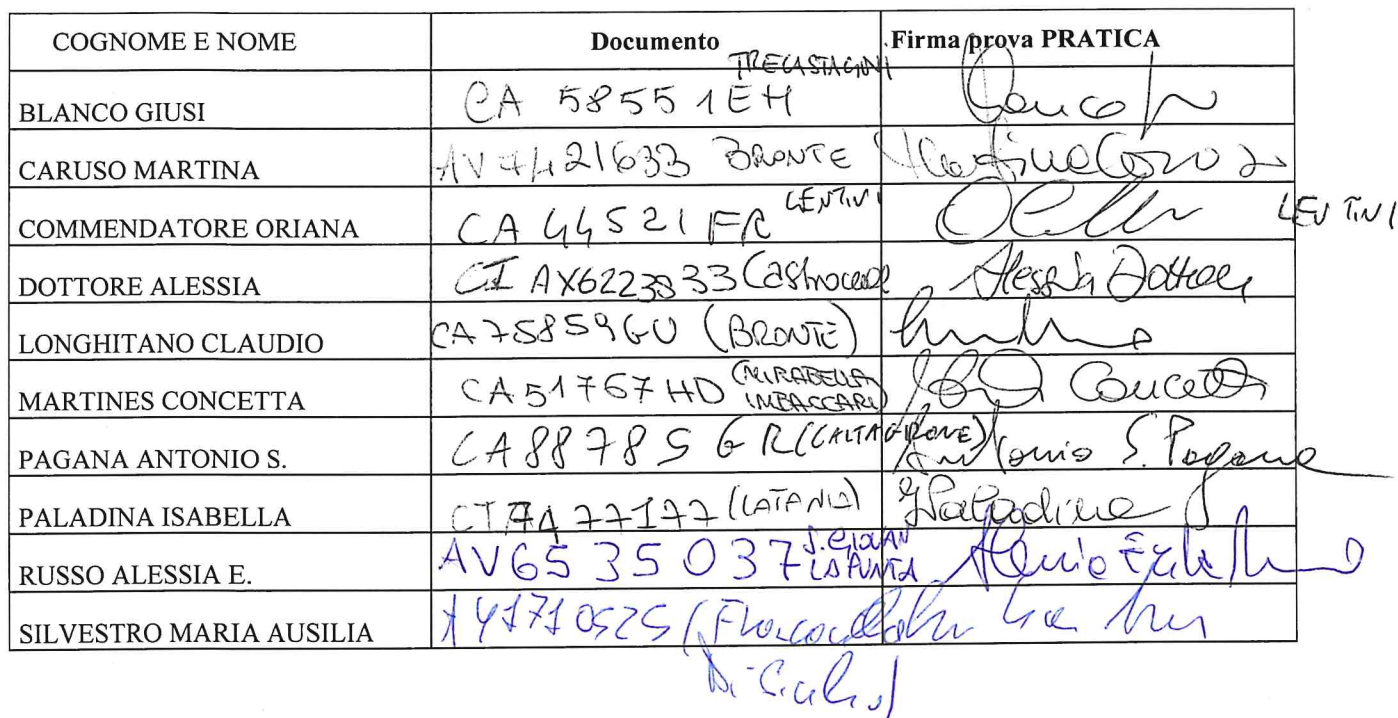 COGNOME E NOME Documento Firma prova PRATICA
BLANCO GIUSI CA 58551EH TRECASTAGNI
CARUSO MARTINA BRONTE Martina Caruso
COMMENDATORE ORIANA CA 44521 FR LENTINI LENTINI
DOTTORE ALESSIA CI AX6223333 Alessia Dottore
LONGHITANO CLAUDIO CA75859GU (BRONTE)
MARTINES CONCETTA CA51767HD (MIRABELLA IMBACCARI) Concetta
PAGANA ANTONIO S. CA88785GR (CALTAGIRONE) Antonio S. Pagana
PALADINA ISABELLA (CATANIA) Paladina
RUSSO ALESSIA E. AV6535037 S. GIOVAN LA PUNTA
SILVESTRO MARIA AUSILIA